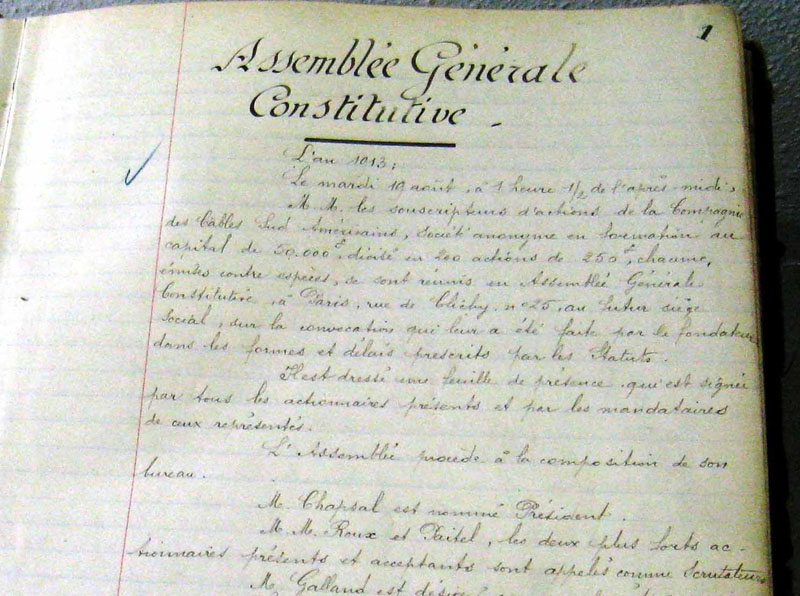 1
Assemblée Générale
Constitutive.
L'an 1913;
Le mardi 19 août, à 1 heure 1/2 de l'après-midi,
M.M. les souscripteurs d'actions de la Compagnie
des Câbles Sud Américains, société anonyme en formation au
capital de 50.000 f, divisé en 200 actions de 250 f, chacune,
émises contre espèces, se sont réunis en Assemblée Générale
Constitutive, à Paris, rue de Clichy, n° 25, au futur siège
Social, sur la convocation qui leur a été faite par le fondateur
dans les formes et délais prescrits par les Statuts.
Il est dressé une feuille de présence qui est signée
par tous les actionnaires présents et par les mandataires
de ceux représentés.
L'Assemblée procède à la composition de son
bureau.
M. Chapsal est nommé Président.
M.M. Roux et Paitel, les deux plus forts ac-
tionnaires présents et acceptants sont appelés comme Scrutateurs
M. Galland est